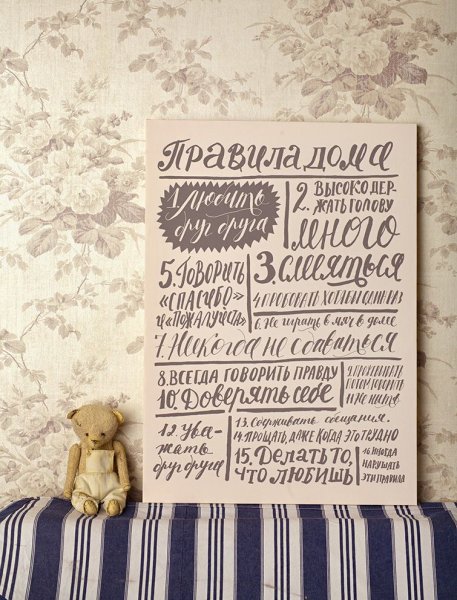 Правила дома
1. Любить
друг друга
2. Высоко дер-
жать голову
много
3. Смеяться
4. Пробовать хотя бы один раз
5. Говорить
«спасибо»
и «пожалуйста»
6. Не играть в мяч в доме
7. Никогда не сдаваться
8. Всегда говорить правду
10. Доверять себе
9. Прожевывать
потом говорить
и не наоб
12. Ува-
жать
друг друга
13. Сдерживать обещания.
14. Прощать, даже когда это трудно
15. Делать то,
что любишь
16. Иногда
нарушать
эти правила